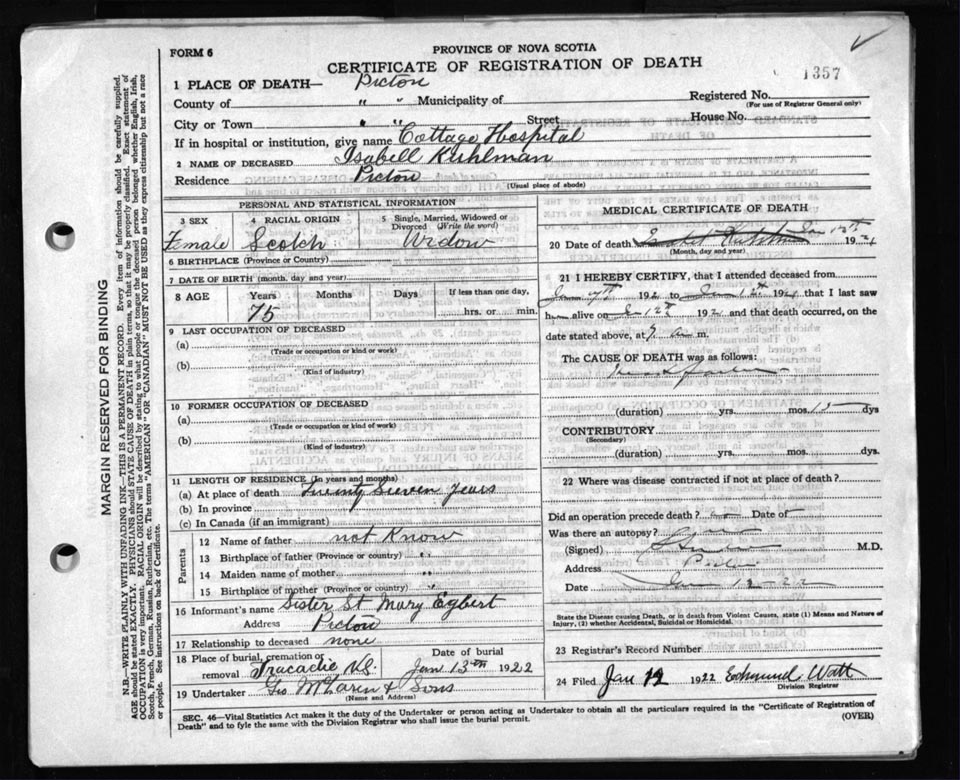 FORM 6
PROVINCE OF NOVA SCOTIA
CERTIFICATE OF REGISTRATION OF DEATH
1357
1 PLACE OF DEATH— Pictou
Registered No.
(For use of Registrar General only)
County of " " Municipality of
City or Town " " Street House No.
If in hospital or institution, give name Cottage Hospital
2 NAME OF DECEASED Isabell Kuhlman
Residence Pictou
(Usual place of abode)
PERSONAL AND STATISTICAL INFORMATION
3 SEX 4 RACIAL ORIGIN 5 Single, Married, Widowed or Divorced (Write the word)
Female Scotch Widow
6 BIRTHPLACE (Province or Country)
7 DATE OF BIRTH (month, day and year)
8 AGE Years Months Days If less than one day,
75 hrs. or min.
9 LAST OCCUPATION OF DECEASED
(a)
(Trade or occupation or kind or work)
(b)
(Kind of industry)
10 FORMER OCCUPATION OF DECEASED
(a)
(Trade or occupation or kind of work)
(b)
(Kind of industry)
11 LENGTH OF RESIDENCE (In years and months)
(a) At place of death Twenty Seven Years
(b) In province
(c) In Canada (if an immigrant)
Parents
12 Name of father not Know
13 Birthplace of father (Province or country) "
14 Maiden name of mother "
15 Birthplace of mother (Province or country) "
16 Informant's name Sister St Mary Egbert
Address Pictou
17 Relationship to deceased none
18 Place of burial, cremation or removal Tracadie N.S. Date of burial Jan 13th 1922
19 Undertaker Geo. McLaren & Sons
(Name and Address)
MEDICAL CERTIFICATE OF DEATH
20 Date of death Isabel Kuhlman Jan 12th 192
(Month, day and year)
21 I HEREBY CERTIFY, that I attended deceased from
Jan 7th 192 to Jan 12th 192 that I last saw
h alive on Jan 12th 192 and that death occurred, on the
date stated above, at 9 a m.
The CAUSE OF DEATH was as follows:
(duration) yrs. mos. 15 dys
CONTRIBUTORY
(Secondary)
(duration) yrs. mos. dys.
22 Where was disease contracted if not at place of death?
Did an operation precede death? no Date of
Was there an autopsy?
(Signed) M.D.
Address Pictou
Date Jan 12-22
State the Disease causing Death, or in death from Violent Causes, state (1) Means and Nature of
Injury, (2) whether Accidental, Suicidal or Homicidal.
23 Registrar's Record Number
24 Filed Jan 12 1922 Edmund Watt
Division Registrar
SEC. 46—Vital Statistics Act makes it the duty of the Undertaker or person acting as Undertaker to obtain all the particulars required in the "Certificate of Registration of
Death" and to fyle the same with the Division Registrar who shall issue the burial permit.
(OVER)
MARGIN RESERVED FOR BINDING
N.B.—WRITE PLAINLY WITH UNFADING INK—THIS IS A PERMANENT RECORD. Every item of information should be carefully supplied.
AGE should be stated EXACTLY. PHYSICIANS should STATE CAUSE OF DEATH in plain terms, so that it may be properly classified. Exact statement of
OCCUPATION is very important. RACIAL ORIGIN will be described by stating to what people or tongue the deceased person belonged whether English, Irish,
Scotch, French, German, Russian, Ruthenian, etc. The terms "AMERICAN" OR "CANADIAN" MUST NOT BE USED as they express citizenship but not a race
or people. See instructions on back of Certificate.